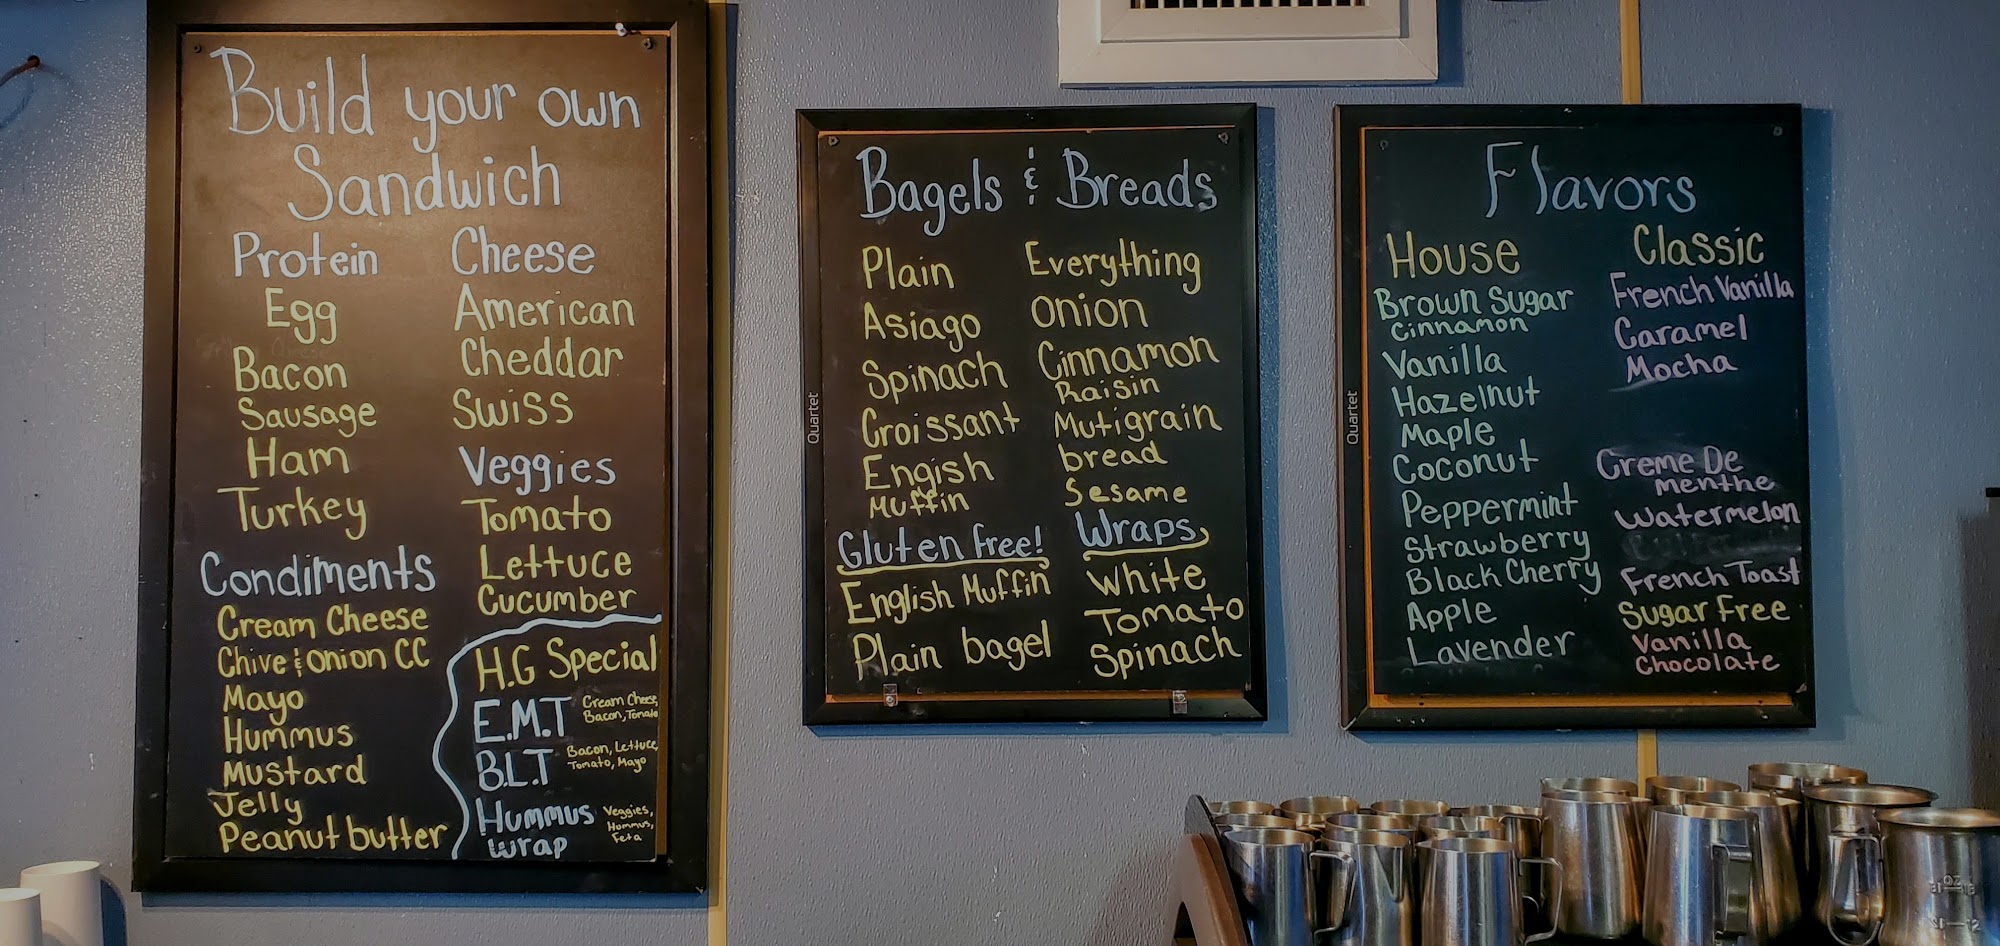 Build your own
Sandwich
Protein
Egg
Bacon
Sausage
Ham
Turkey
Condiments
Cream Cheese
Chive & Onion CC
Mayo
Hummus
Mustard
Jelly
Peanut butter
Cheese
American
Cheddar
Swiss
Veggies
Tomato
Lettuce
Cucumber
H.G Special
E.M.T
Cream Cheese,
Bacon, Tomato
B.L.T
Bacon, Lettuce,
Tomato, Mayo
Hummus
wrap
Veggies,
Hummus,
Feta
Quartet
Bagels & Breads
Plain
Asiago
Spinach
Croissant
Engish
Muffin
Gluten free!
English Muffin
Plain bagel
Everything
Onion
Cinnamon
Raisin
Mutigrain
bread
Sesame
Wraps
White
Tomato
Spinach
Quartet
Flavors
House
Brown Sugar
Cinnamon
Vanilla
Hazelnut
Maple
Coconut
Peppermint
Strawberry
Black Cherry
Apple
Lavender
Classic
French Vanilla
Caramel
Mocha
Creme De
menthe
Watermelon
French Toast
Sugar Free
Vanilla
Chocolate